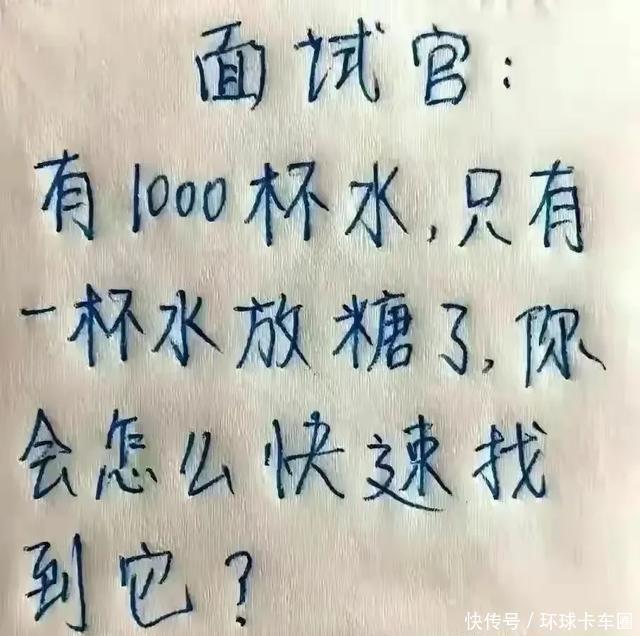 面试官:
有1000杯水,只有
一杯水放糖了,你
会怎么快速找
到它?
快传号/环球卡车圈